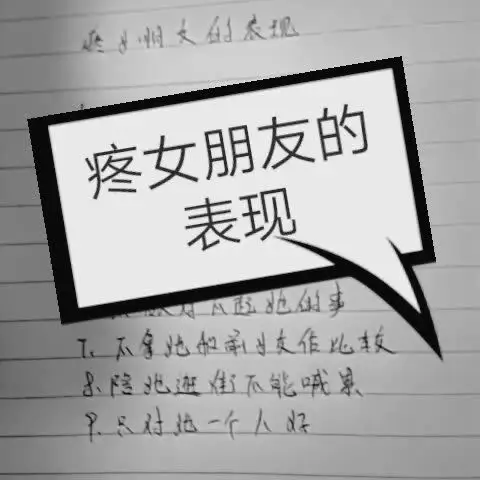 疼女朋友的表现
疼女朋友的
表现
对不起她的事
7、不拿她和前女友作比较
8、陪她逛街不能喊累
9、只对她一个人好